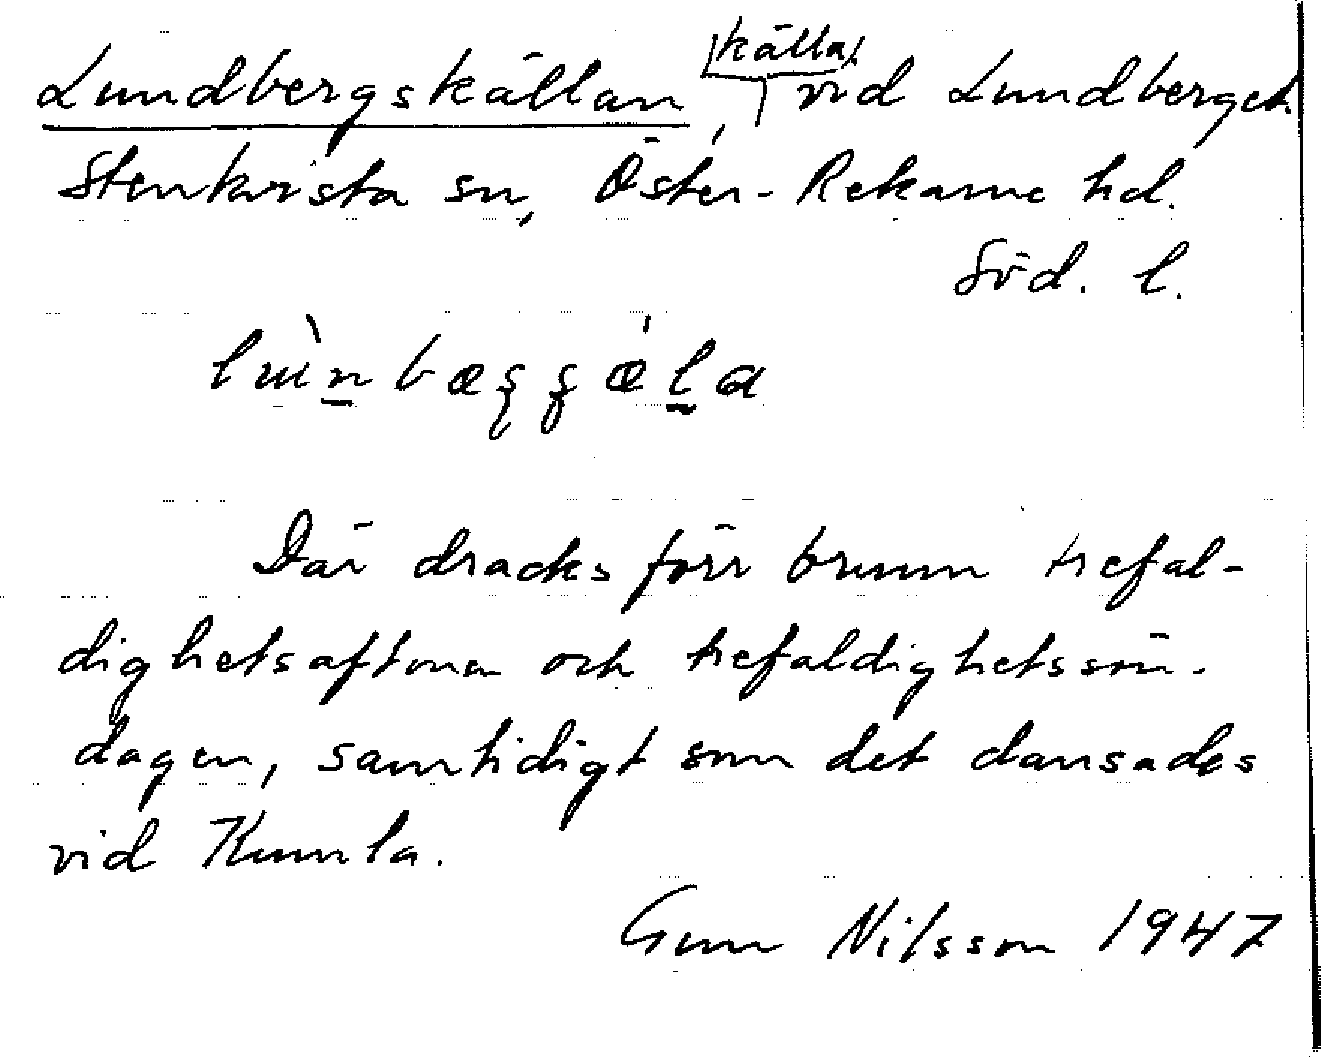 Lundbergskällan, källa vid Lundberget.
Stenkvista sn, Öster-Rekarne hd.
Söd. l.
Där dracks förr brunn trefal-
dighetsaftonen och trefaldighetssön-
dagen, samtidigt som det dansades
vid Kumla.
Gun Nilsson 1947